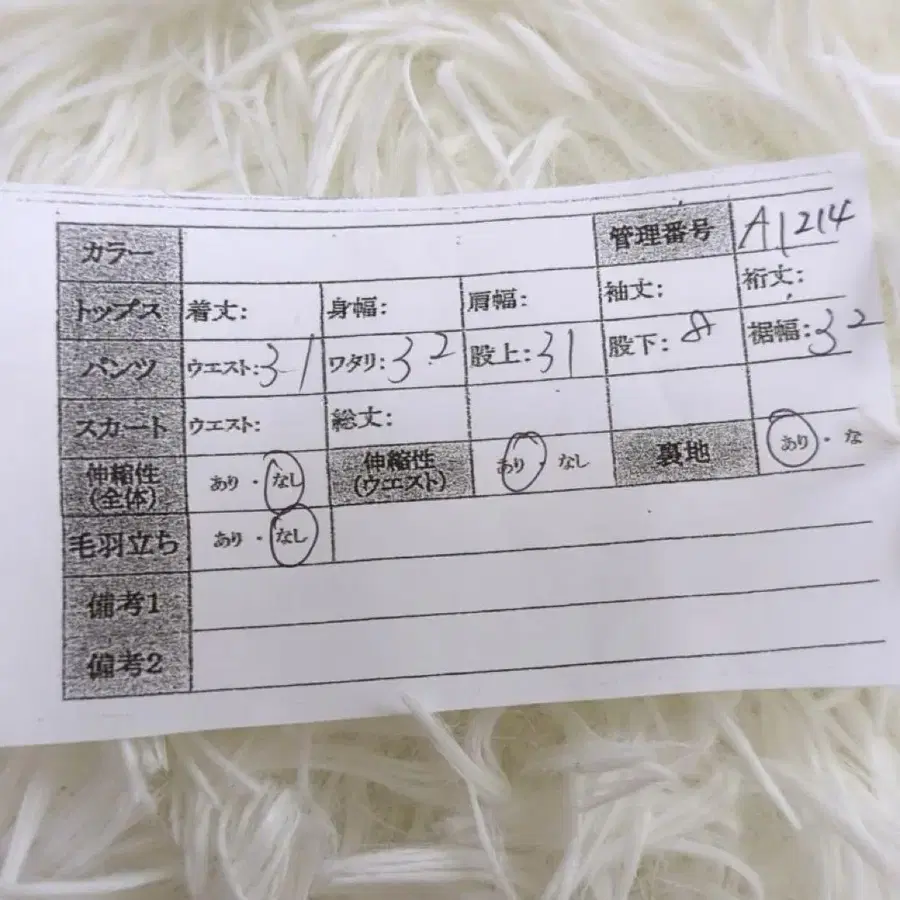 カラー 管理番号 A1214
トップス 着丈: 身幅: 肩幅: 袖丈: 裄丈:
パンツ ウエスト:31 ワタリ:32 股上:31 股下:8 裾幅:32
スカート ウエスト: 総丈:
伸縮性(全体) あり・なし 伸縮性(ウエスト) あり・なし 裏地 あり・な
毛羽立ち あり・なし
備考1
備考2